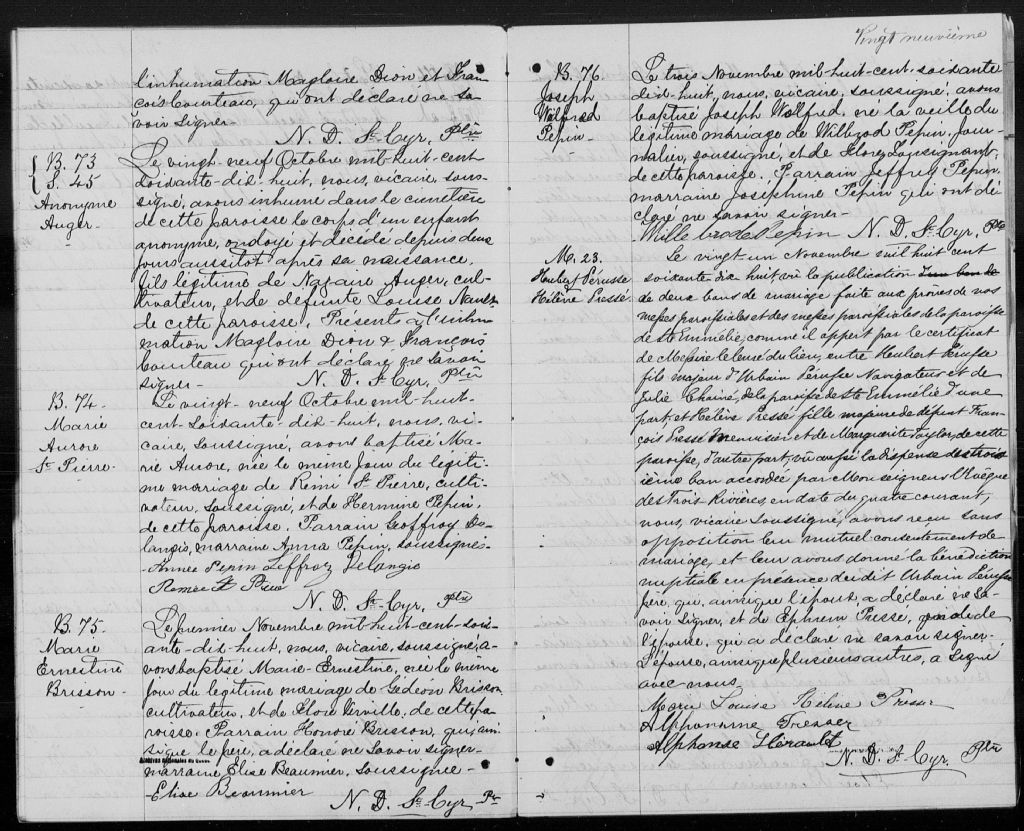 l'inhumation Magloire Dion et Fran
çois Courteau, qui ont déclaré ne sa
voir signer
N. D. St-Cyr, Ptre
B. 73
S. 45
Anonyme
Auger.
Le vingt-neuf Octobre mil-huit-cent
soixante-dix-huit, nous, vicaire, sous-
signé, avons inhumé dans le cimetière
de cette paroisse le corps d'un enfant
anonyme, ondoyé et décédé depuis deux
jours aussitot après sa naissance,
fils légitime de Nazaire Auger, cul-
tivateur, et de defunte Louise
de cette paroisse. Présents à l'inhu
mation Magloire Dion & François
Courteau qui ont déclaré ne savoir
signer-
N. D. St-Cyr, Ptre
B. 74-
Marie
Aurore
St-Pierre.
Le vingt-neuf Octobre mil-huit-
cent-soixante-dix-huit, nous, vi-
caire, soussigné, avons baptisé Ma-
rie Aurore, née le même jour du légiti-
me mariage de Remi St-Pierre, culti-
vateur, soussigné, et de Hermine Pepin,
de cette paroisse. Parrain Geoffroy De-
langis, marraine Anna Pepin, soussignés-
Annee Pepin Jeffroy Delangis
N. D. St-Cyr, Ptre
B. 75-
Marie
Ernestine
Brisson-
Le premier Novembre mil-huit-cent-soix-
ante-dix-huit, nous, vicaire, soussigné, a-
vons baptisé Marie-Ernestine, née le même
jour du légitime mariage de Gédéon Brisson
cultivateur, et de Flore Verville, de cette pa-
roisse. Parrain Honoré Brisson, qui, ain-
si que le père, a déclaré ne savoir signer-
Archives nationales du Québec
marraine, Elise Beaumier, soussignée-
Elise Beaumier
N. D. St-Cyr Ptre
Vingt neuvième
B. 76
Joseph
Wilfred
Pepin-
Le trois Novembre mil-huit-cent-soixante
dix-huit, nous, vicaire, soussigné, avons
baptisé Joseph Wilfred, né la veille du
légitime mariage de Pepin, jour-
nalier, soussigné, et de Flore
de cette paroisse. Parrain Jeffrey Pepin,
marraine Joséphine Pepin qui ont dé-
claré ne savoir signer-
Pepin N. D. St-Cyr, Ptre
M. 23.
Heubert Perusse
Hélène Pressé
Le vingt un Novembre mil huit cent
soixante dix huit, vu la publication
de deux bans de mariage faite aux prônes de nos
messes paroissiales et des messes paroissiales de la paroisse
de Ste Emmélie, comme il appert par le certificat
de Messire le Curé du lieu, entre Heubert Perusse
fils majeur d'Urbain Pérusse Navigateur et de
Julie Chainé, de la paroisse de Ste Emmélie d'une
part, et Hélène Pressé fille majeure de défunt Fran
çois Pressé Menuisier et de Marguerite Taylor, de cette
paroisse, d'autre part, vu aussi la dispense du trois
ième ban accordée par Monseigneur l'Evêque
des Trois-Rivières, en date du quatre courant,
nous, vicaire soussigné, avons reçu sans
opposition leur mutuel consentement de
mariage, et leur avons donné la bénédiction
nuptiale en présence du dit Urbain Pérusse
père, qui, ainsi que l'époux a déclaré ne sa-
voir signer, et de Ephrem Pressé, oncle de
l'épouse, qui a déclaré ne savoir signer-
L'épouse, ainsi que plusieurs autres, a signé
avec nous.
Marie Louise Hélène Presse
Alphonsine
Alphonse Hérault
N. D. St-Cyr, Ptre